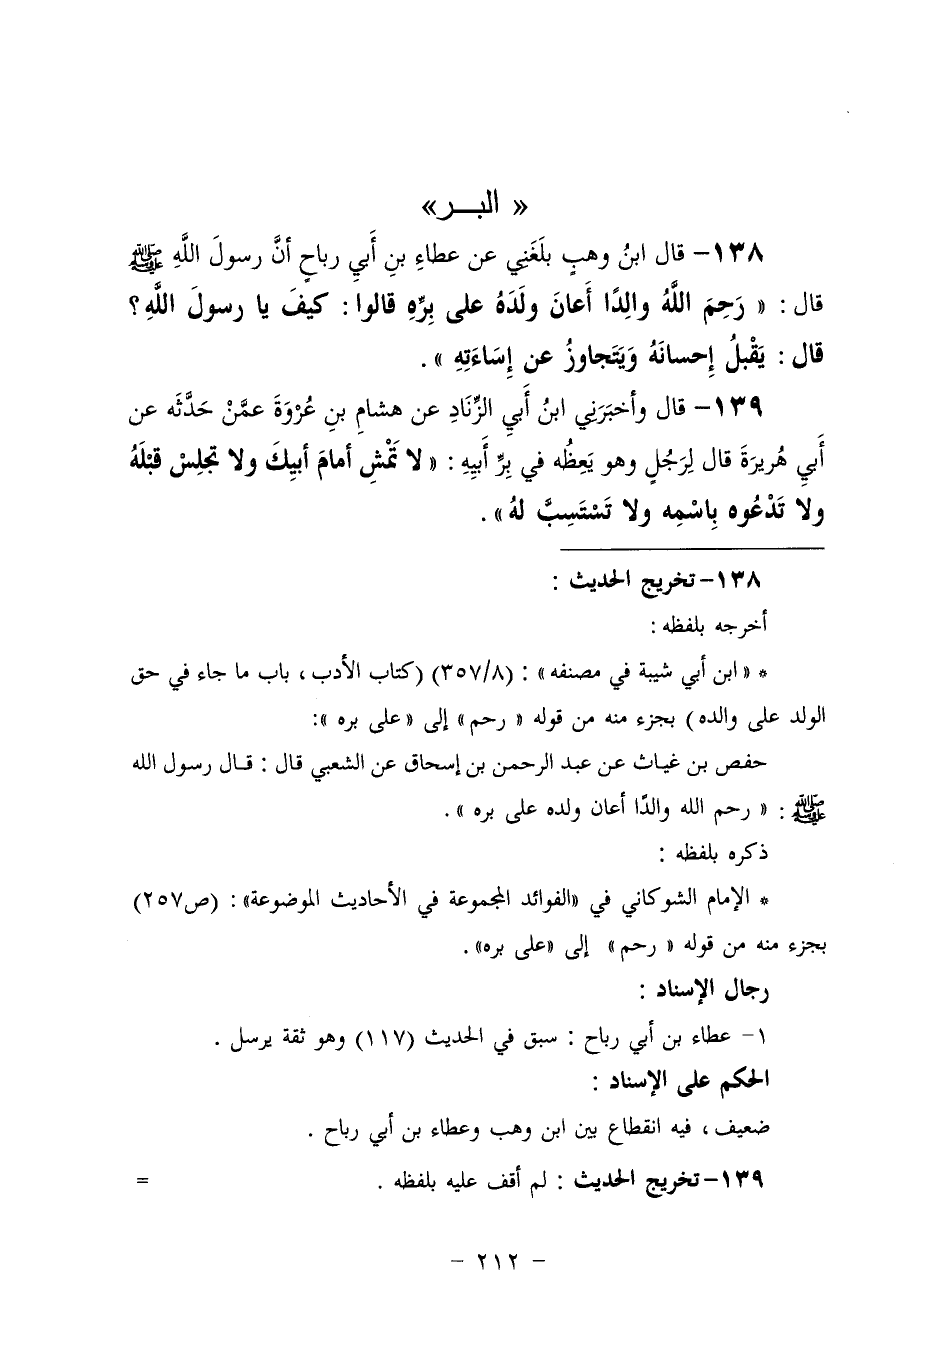 « البـــر»
١٣٨- قال ابنُ وهبٍ بلَغَنِي عن عطاءِ بنِ أَبيِ رباحٍ أنَّ رسولَ اللَّهِ ﷺ
قال : « رَحِمَ اللَّهُ والِدًا أَعانَ ولَدَهُ على بِرِّهِ قالوا : كيفَ يا رسولَ اللَّهِ؟
قال : يَقْبلُ إِحسانَهُ وَيَتَجاوزُ عن إِسَاءَتِهِ » .
١٣٩- قال وأخبَرَنِي ابنُ أَبيِ الزِّنَادِ عن هشامِ بنِ عُرْوَةَ عمَّنْ حَدَّثَه عن
أَبيِ هُريرَةَ قال لِرَجُلٍ وهو يَعِظُه في بِرِّ أَبيهِ : « لا تَمْشِ أمامَ أبيكَ ولا تجلِسْ قبْلَهُ
ولا تَدْعُوه بِاسْمِه ولا تَسْتَسِبَّ لهُ» .
١٣٨-تخريج الحديث :
أخرجه بلفظه :
* « ابن أبي شيبة في مصنفه» : (٣٥٧/٨) (كتاب الأدب ، باب ما جاء في حق
الولد على والده) بجزء منه من قوله « رحم» إلى «على بره »:
حفص بن غياث عن عبد الرحمن بن إسحاق عن الشعبي قال : قـال رسول الله
ﷺ : « رحم الله والدًا أعان ولده على بره » .
ذكره بلفظه :
* الإمام الشوكاني في «الفوائد المجموعة في الأحاديث الموضوعة» : (ص٢٥٧)
بجزء منه من قوله « رحم» إلى «على بره» .
رجال الإسناد :
١- عطاء بن أبي رباح : سبق في الحديث (١١٧) وهو ثقة يرسل .
الحكم على الإسناد :
ضعيف ، فيه انقطاع بين ابن وهب وعطاء بن أبي رباح .
١٣٩-تخريج الحديث : لم أقف عليه بلفظه . =
- ٢١٢ -